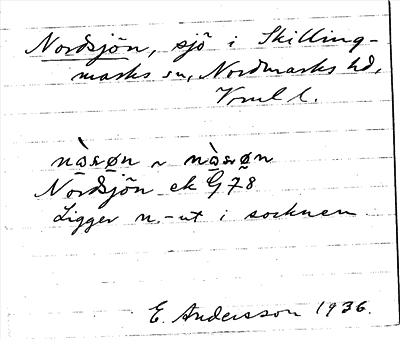 Nordsjön, sjö i Skilling-
marks sn, Nordmarks hd,
Vrml l.
Nordsjön ek G78
Ligger n.-ut i socknen
E. Andersson 1936.